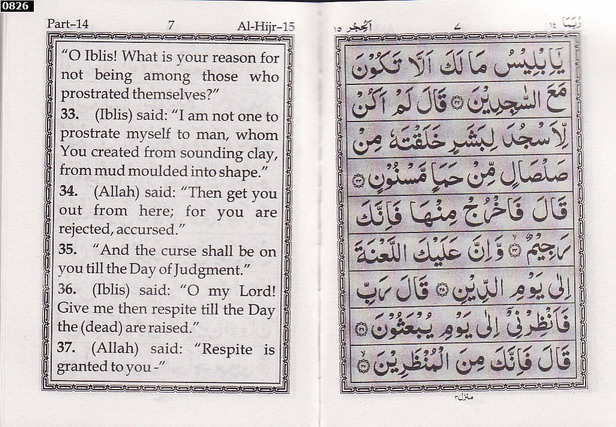 0826
Part–14 7 Al-Hijr–15
“O Iblis! What is your reason for
not being among those who
prostrated themselves?”
33. (Iblis) said: “I am not one to
prostrate myself to man, whom
You created from sounding clay,
from mud moulded into shape.”
34. (Allah) said: “Then get you
out from here; for you are
rejected, accursed.”
35. “And the curse shall be on
you till the Day of Judgment.”
36. (Iblis) said: “O my Lord!
Give me then respite till the Day
the (dead) are raised.”
37. (Allah) said: “Respite is
granted to you -”
رُبَمَا ١٤ ٧ اَلْحِجْر ١٥
يٰۤاِبْلِيْسُ مَا لَكَ اَلَّا تَكُوْنَ
مَعَ السّٰجِدِيْنَ ﴿٣٢﴾ قَالَ لَمْ اَكُنْ
لِّاَسْجُدَ لِبَشَرٍ خَلَقْتَهٗ مِنْ
صَلْصَالٍ مِّنْ حَمَاٍ مَّسْنُوْنٍ ﴿٣٣﴾
قَالَ فَاخْرُجْ مِنْهَا فَاِنَّكَ
رَجِيْمٌ ﴿٣٤﴾ وَّاِنَّ عَلَيْكَ اللَّعْنَةَ
اِلٰى يَوْمِ الدِّيْنِ ﴿٣٥﴾ قَالَ رَبِّ
فَاَنْظِرْنِيْۤ اِلٰى يَوْمِ يُبْعَثُوْنَ ﴿٣٦﴾
قَالَ فَاِنَّكَ مِنَ الْمُنْظَرِيْنَ ﴿٣٧﴾
منزل٣